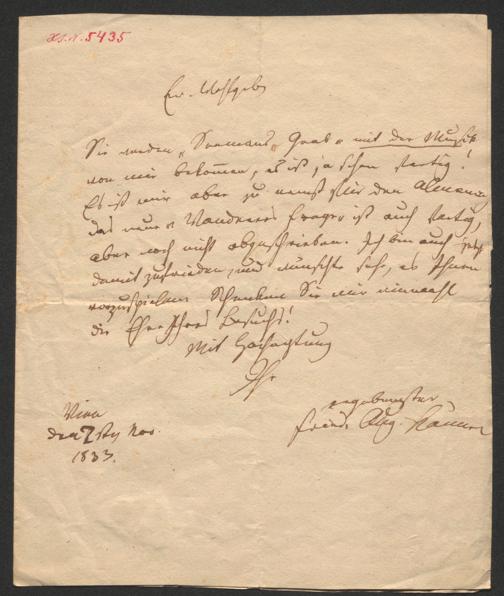 Hs.N. 5435
Ew. Wohlgeb
Sie werden „Seemans Grab“ mit der Musik
von mir bekommen, es ist ja schon fertig!
Es ist mir aber zu ernst für den Almanac
das neue „Wanderers Frage“ ist auch fertig,
aber noch nicht abgeschrieben. Ich bin auch jetzt
damit zufrieden, und wünschte sehr, es Ihnen
vorzuspielen. Schenken Sie mir einmahl
die Ehre Ihres Besuchs!
Mit Hochachtung
Ihr
ergebenster
Freund Aug.
Wien
den 7ten Nov.
1833.